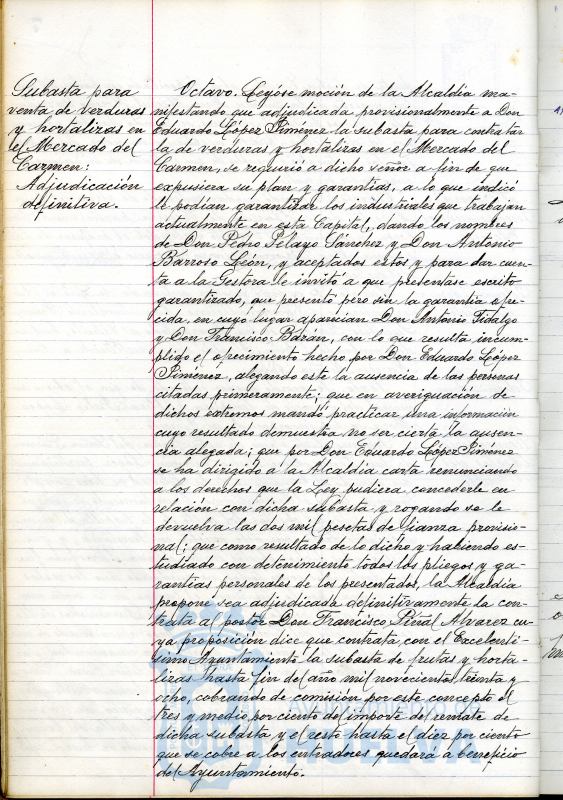 Subasta para
venta de verduras
y hortalizas en
el Mercado del
Carmen:
Adjudicación
definitiva.
Octavo. Leyóse moción de la Alcaldía ma-
nifestando que adjudicada provisionalmente a Don
Eduardo López Jiménez la subasta para contratar
la de verduras y hortalizas en el Mercado del
Carmen, se requirió a dicho señor a fin de que
expusiera su plan y garantías, a lo que indicó
le podían garantizar los industriales que trabajan
actualmente en esta Capital, dando los nombres
de Don Pedro Pelayo Sánchez y Don Antonio
Barroso León, y aceptados estos, y para dar cuen-
ta a la Gestora le invitó a que presentase escrito
garantizado, que presentó pero sin la garantía ofre-
cida, en cuyo lugar aparecían Don Antonio Fidalgo
y Don Francisco Bazán, con lo que resulta incum-
plido el ofrecimiento hecho por Don Eduardo López
Jiménez, alegando este la ausencia de las personas
citadas primeramente; que en averiguación de
dichos extremos mandó practicar una información
cuyo resultado demuestra no ser cierta la ausen-
cia alegada; que por Don Eduardo López Jiménez
se ha dirigido a la Alcaldía carta renunciando
a los derechos que la Ley pudiera concederle en
relación con dicha subasta y rogando se le
devuelva las dos mil pesetas de fianza provisio-
nal; que como resultado de lo dicho y habiendo es-
tudiado con detenimiento todos los pliegos y ga-
rantías personales de los presentados, la Alcaldía
propone sea adjudicada definitivamente la con-
trata al postor Don Francisco Piñal Alvarez cu-
ya proposición dice que contrata con el Excelentí-
simo Ayuntamiento la subasta de frutas y horta-
lizas hasta fin del año mil novecientos treinta y
ocho, cobrando de comisión por este concepto el
tres y medio por ciento del importe del remate de
dicha subasta y el resto hasta el diez por ciento
que se cobre a los entradores quedará a beneficio
del Ayuntamiento.
Ayuntamiento de
HUELVA